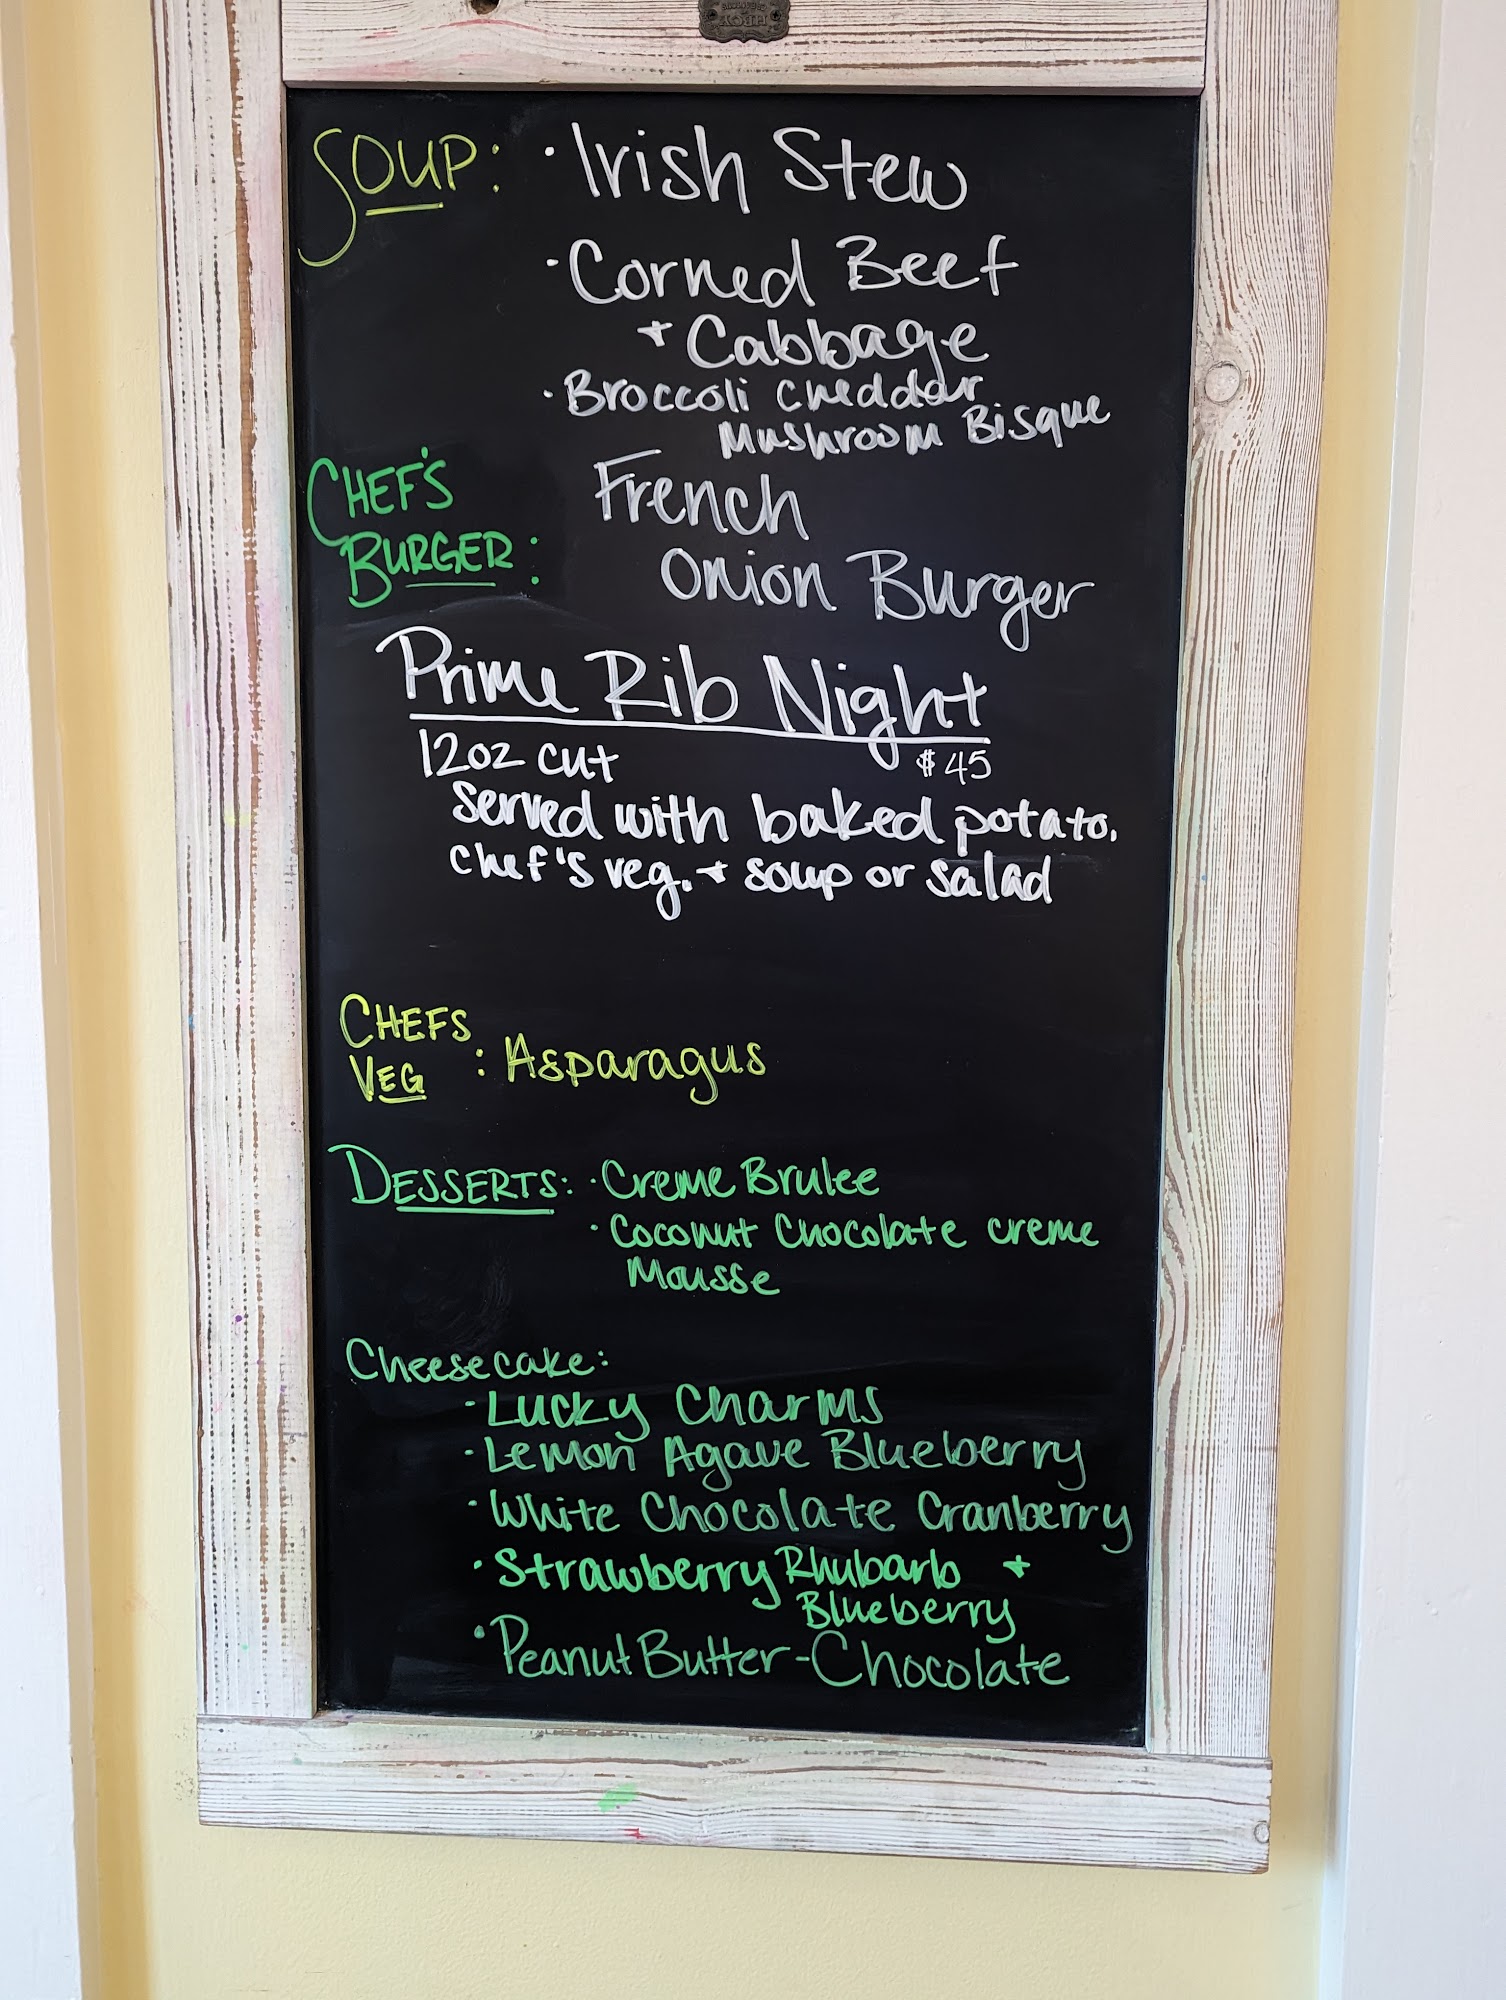 SOUP: · Irish Stew
· Corned Beef
+ Cabbage
· Broccoli Cheddar
Mushroom Bisque
CHEF'S BURGER: French
Onion Burger
Prime Rib Night
12oz cut $45
served with baked potato,
chef's veg. + soup or salad
CHEFS
VEG : Asparagus
DESSERTS: · Creme Brulee
· Coconut Chocolate creme
Mousse
Cheesecake:
· Lucky Charms
· Lemon Agave Blueberry
· White Chocolate Cranberry
· Strawberry Rhubarb +
Blueberry
· Peanut Butter-Chocolate